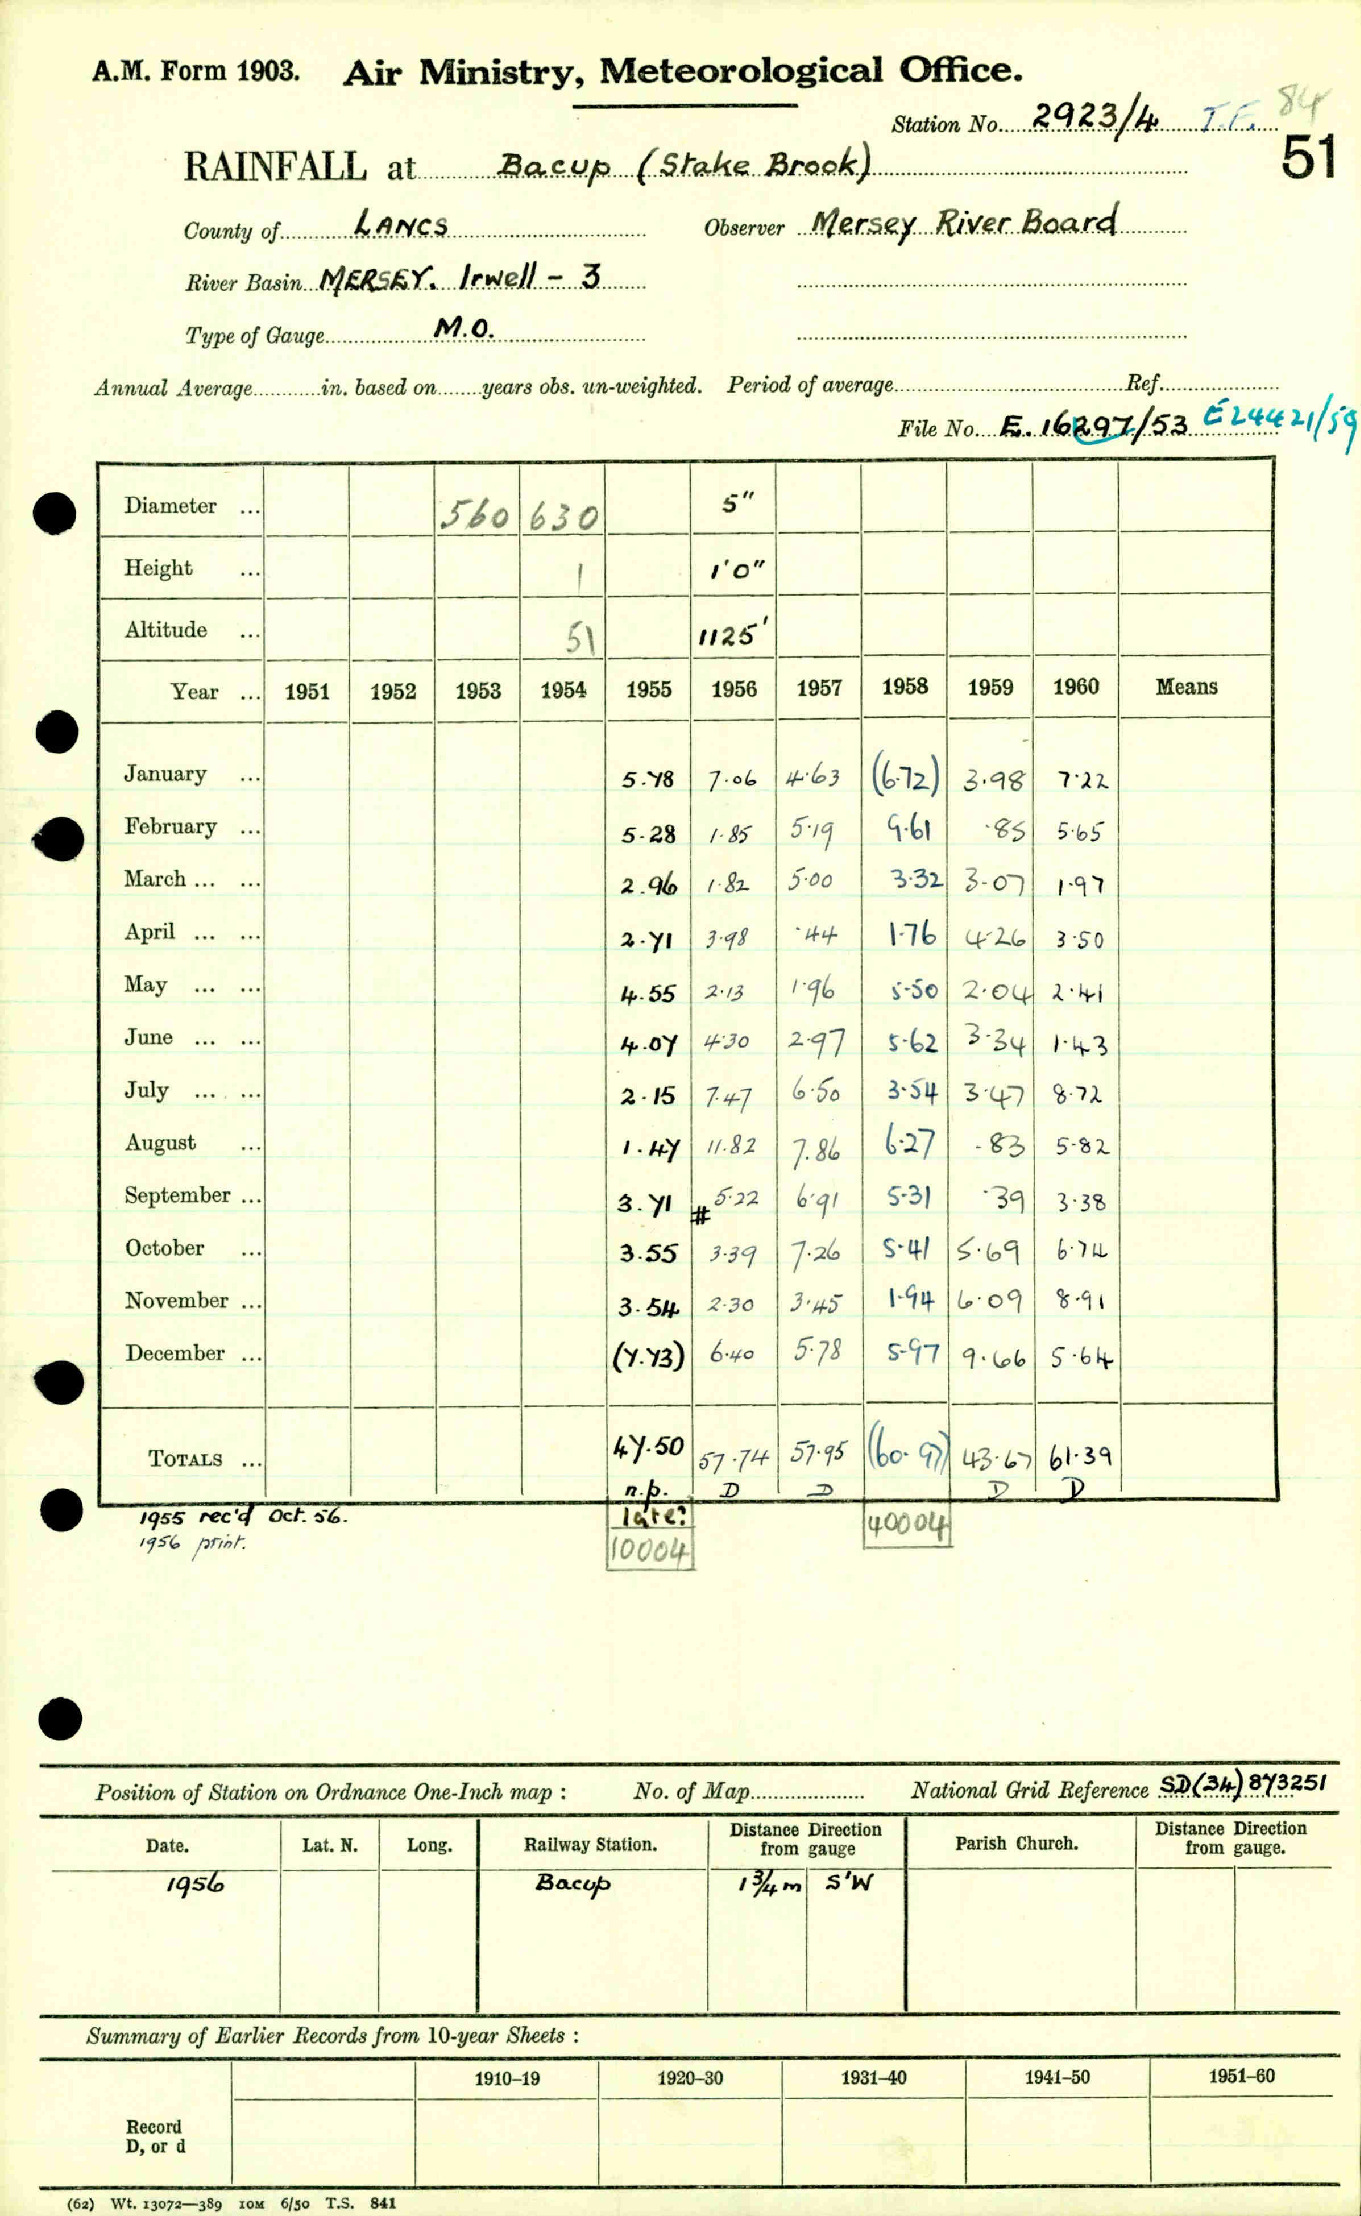 A.M. Form 1903. Air Ministry, Meteorological Office.
84
Station No. 2923/4 T.F.
51
RAINFALL at Bacup (Stake Brook)
County of LANCS Observer Mersey River Board
River Basin MERSEY. Irwell - 3
Type of Gauge M.O.
Annual Average in. based on years obs. un-weighted. Period of average Ref.
File No. E. 16297/53 E24421/59
Diameter ... 560 630 5"
Height ... 1 1'0"
Altitude ... 51 1125'
Year ... 1951 1952 1953 1954 1955 1956 1957 1958 1959 1960 Means
January ... 5.78 7.06 4.63 (6.72) 3.98 7.22
February ... 5.28 1.85 5.19 9.61 .85 5.65
March ... ... 2.96 1.82 5.00 3.32 3.07 1.97
April ... ... 2.71 3.98 .44 1.76 4.26 3.50
May ... ... 4.55 2.13 1.96 5.50 2.04 2.41
June ... ... 4.07 4.30 2.97 5.62 3.34 1.43
July ... ... 2.15 7.47 6.50 3.54 3.47 8.72
August ... 1.47 11.82 7.86 6.27 .83 5.82
September ... 3.71 # 5.22 6.91 5.31 .39 3.38
October ... 3.55 3.39 7.26 5.41 5.69 6.74
November ... 3.54 2.30 3.45 1.94 6.09 8.91
December ... (7.73) 6.40 5.78 5.97 9.66 5.64
TOTALS ... 47.50 57.74 57.95 (60.97) 43.67 61.39
n.p. D D D D
1955 rec'd Oct. 56. late? 40004
1956 print. 10004
Position of Station on Ordnance One-Inch map : No. of Map National Grid Reference SD(34) 873251
Date. Lat. N. Long. Railway Station. Distance Direction from gauge Parish Church. Distance Direction from gauge.
1956 Bacup 1 3/4 m S'W
Summary of Earlier Records from 10-year Sheets :
1910–19 1920–30 1931–40 1941–50 1951–60
Record
D, or d
(62) Wt. 13072—389 10M 6/50 T.S. 841